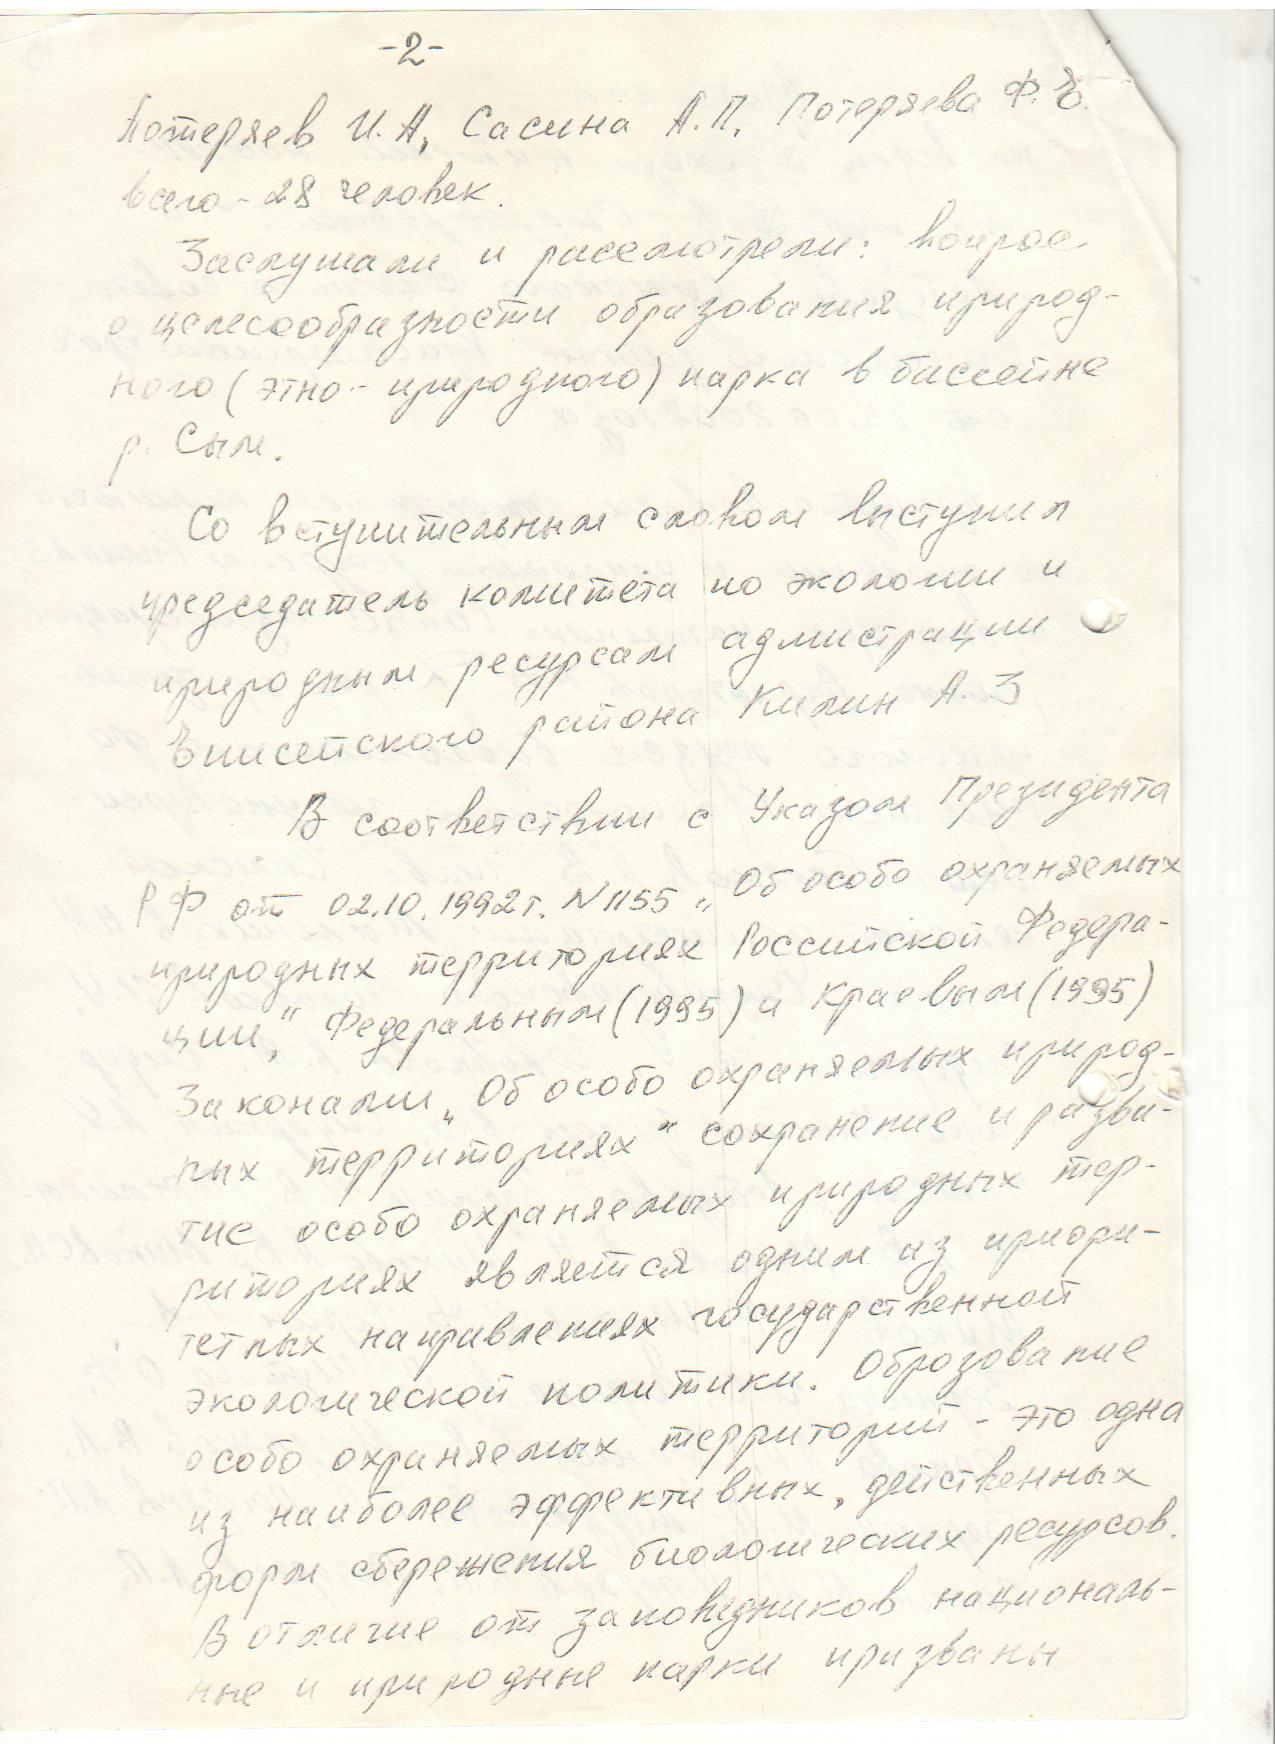 -2-
Потеряев И.А, Сасина А.П, Потеряева Ф.Е.
всего - 28 человек.
Заслушали и рассмотрели: вопрос
о целесообразности образования природ-
ного (этно-природного) парка в бассейне
р. Сым.
Со вступительным словом выступил
председатель комитета по экологии и
природным ресурсам адмистрации
Енисейского района Килин А.З
В соответствии с Указом Президента
РФ от 02.10.1992г. N1155 „Об особо охраняемых
природных территориях Российской Федера-
ции," Федеральным (1995) и Краевым (1995)
Законами „Об особо охраняемых природ-
ных территориях" сохранение и разви-
тие особо охраняемых природных тер-
риториях является одним из приори-
тетных направлениях государственной
экологической политики. Образование
особо охраняемых территорий - это одна
из наиболее эффективных, действенных
форм сбережения биологических ресурсов.
В отличие от заповедников националь-
ные и природные парки призваны